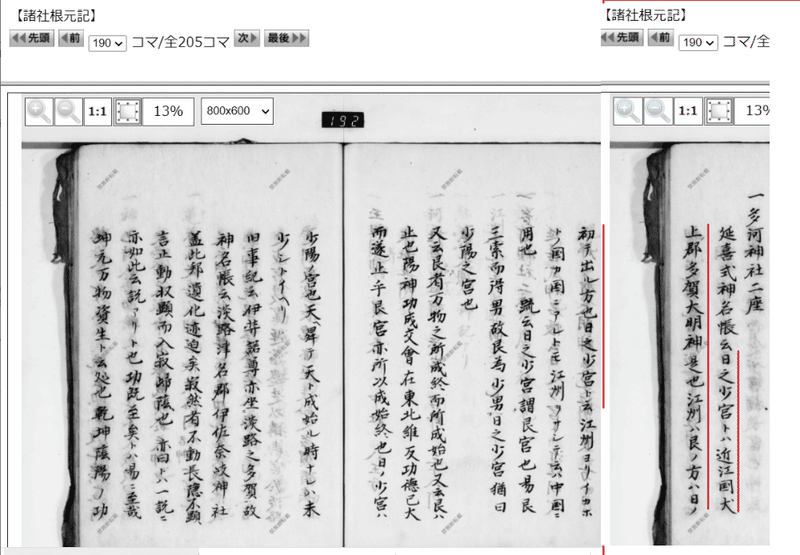 【諸社根元記】
先頭 前 190 コマ/全205コマ 次 最後
1:1 13% 800x600
192
初テ出ル方也日之少宮ト云江州ヨリイカホ
トノ国カ国ニアレトモ江州ヲサシテ云ハ中国ニ
用也 䟽云日之少宮謂艮宮也易艮
三索而得男故艮為少男日之少宮猶曰
少陽之宮也
又云艮者万物之所成終而所成始也又云艮ハ
止也陽神功成交會在東北維反功德已大
而遂止乎艮宮亦所以成始終也日ノ少宮ハ
少陽ノ宮也天ニ昇テ天ト成始ル時ナレハ未
少シトイヘリ
旧事紀云伊弉諾尊亦坐淡路之多賀故
神名帳云淡路津名郡伊佐奈岐神社
盖此邦邊化迹迫矣寂然者不動長隱不顕
言正動収顕而入寂帰蔭也 亦曰ハ一説ニ
亦如此云説アリト也功既至矣トハ易ニ至哉
坤元万物資生ト云処也乾坤陰陽ノ功
【諸社根元記】
先頭 前 190 コマ/全
1:1 13%
一多河神社二座
延喜式神名帳云日之少宮トハ近江国犬
上郡多賀大明神是也江州ハ艮ノ方ハ日ノ